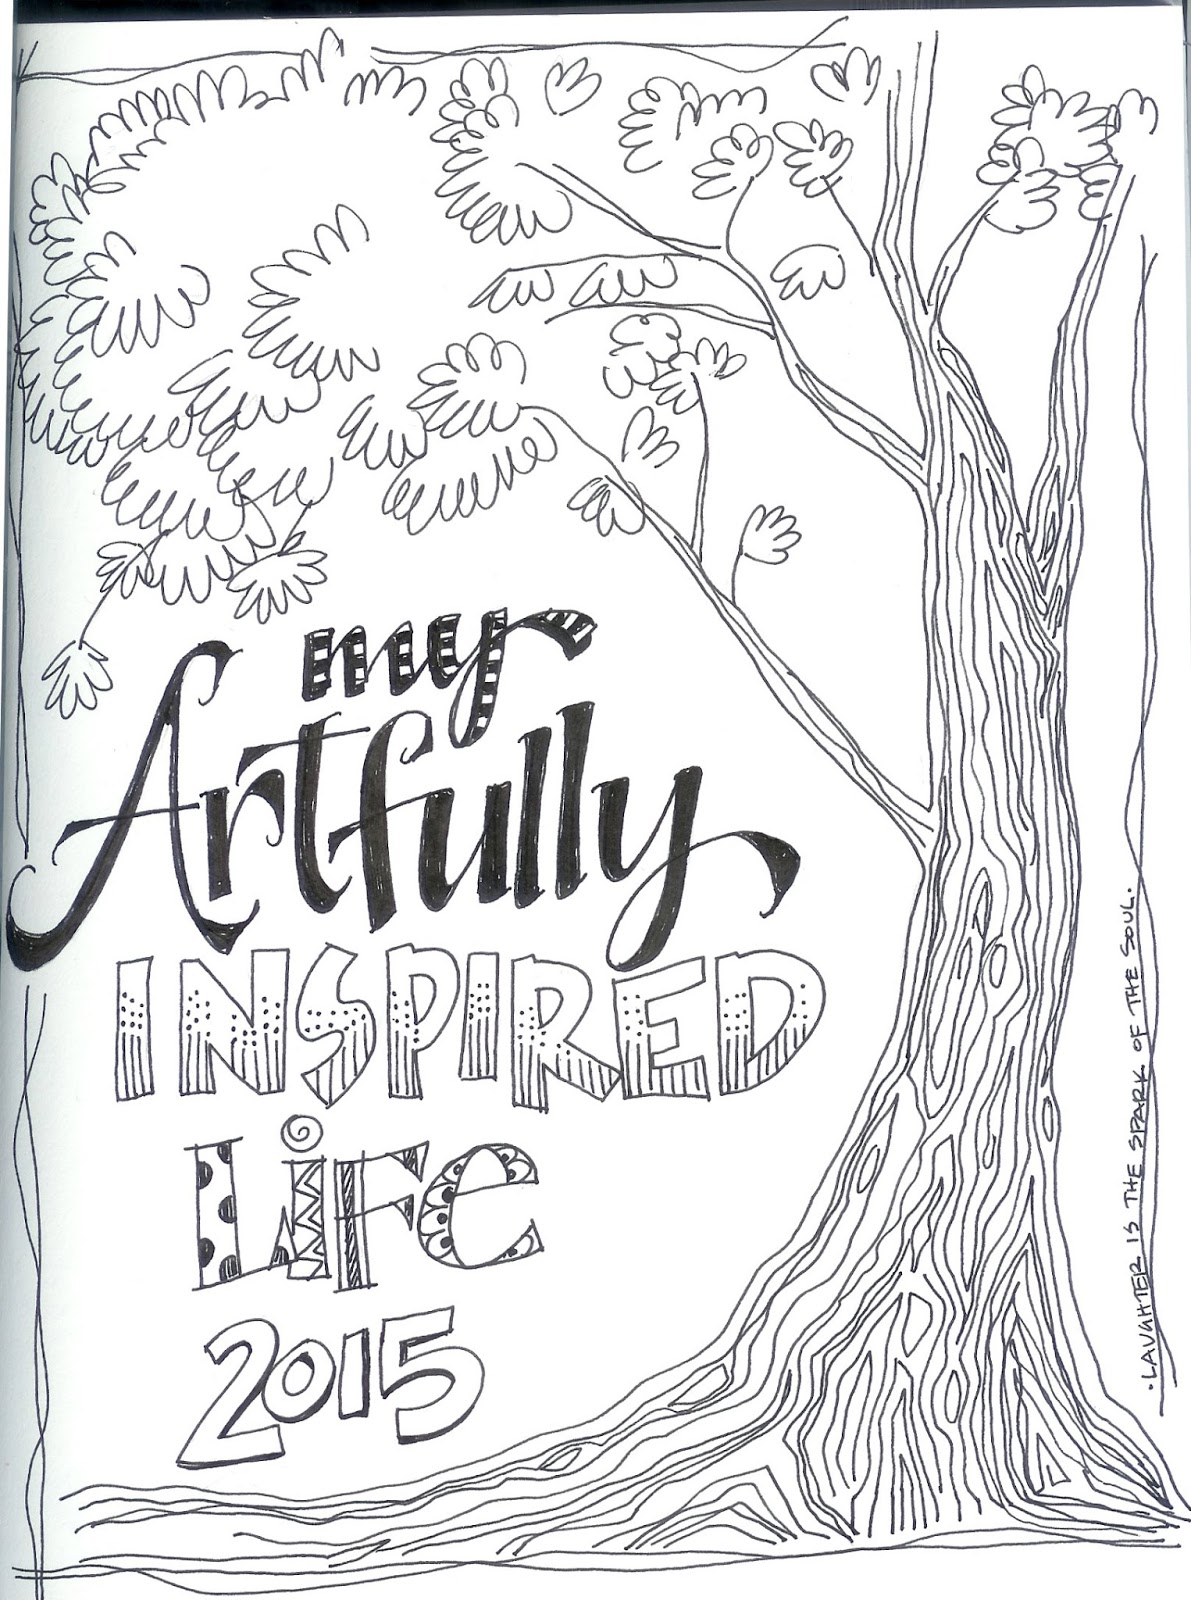 my
Artfully
INSPIRED
LiFe
2015
· LAUGHTER IS THE SPARK OF THE SOUL.